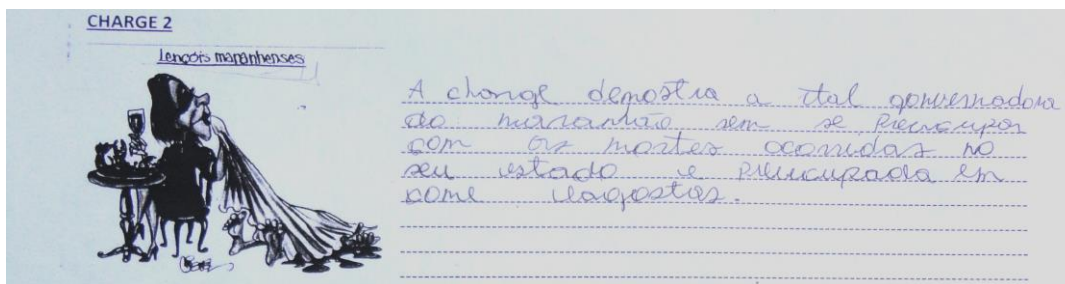 CHARGE 2
Lençóis maranhenses
A charge demostra a tal governadora
do maranhão sem se preocupar
com as mortes ocorridas no
seu estado e preucupada em
come lagostas.